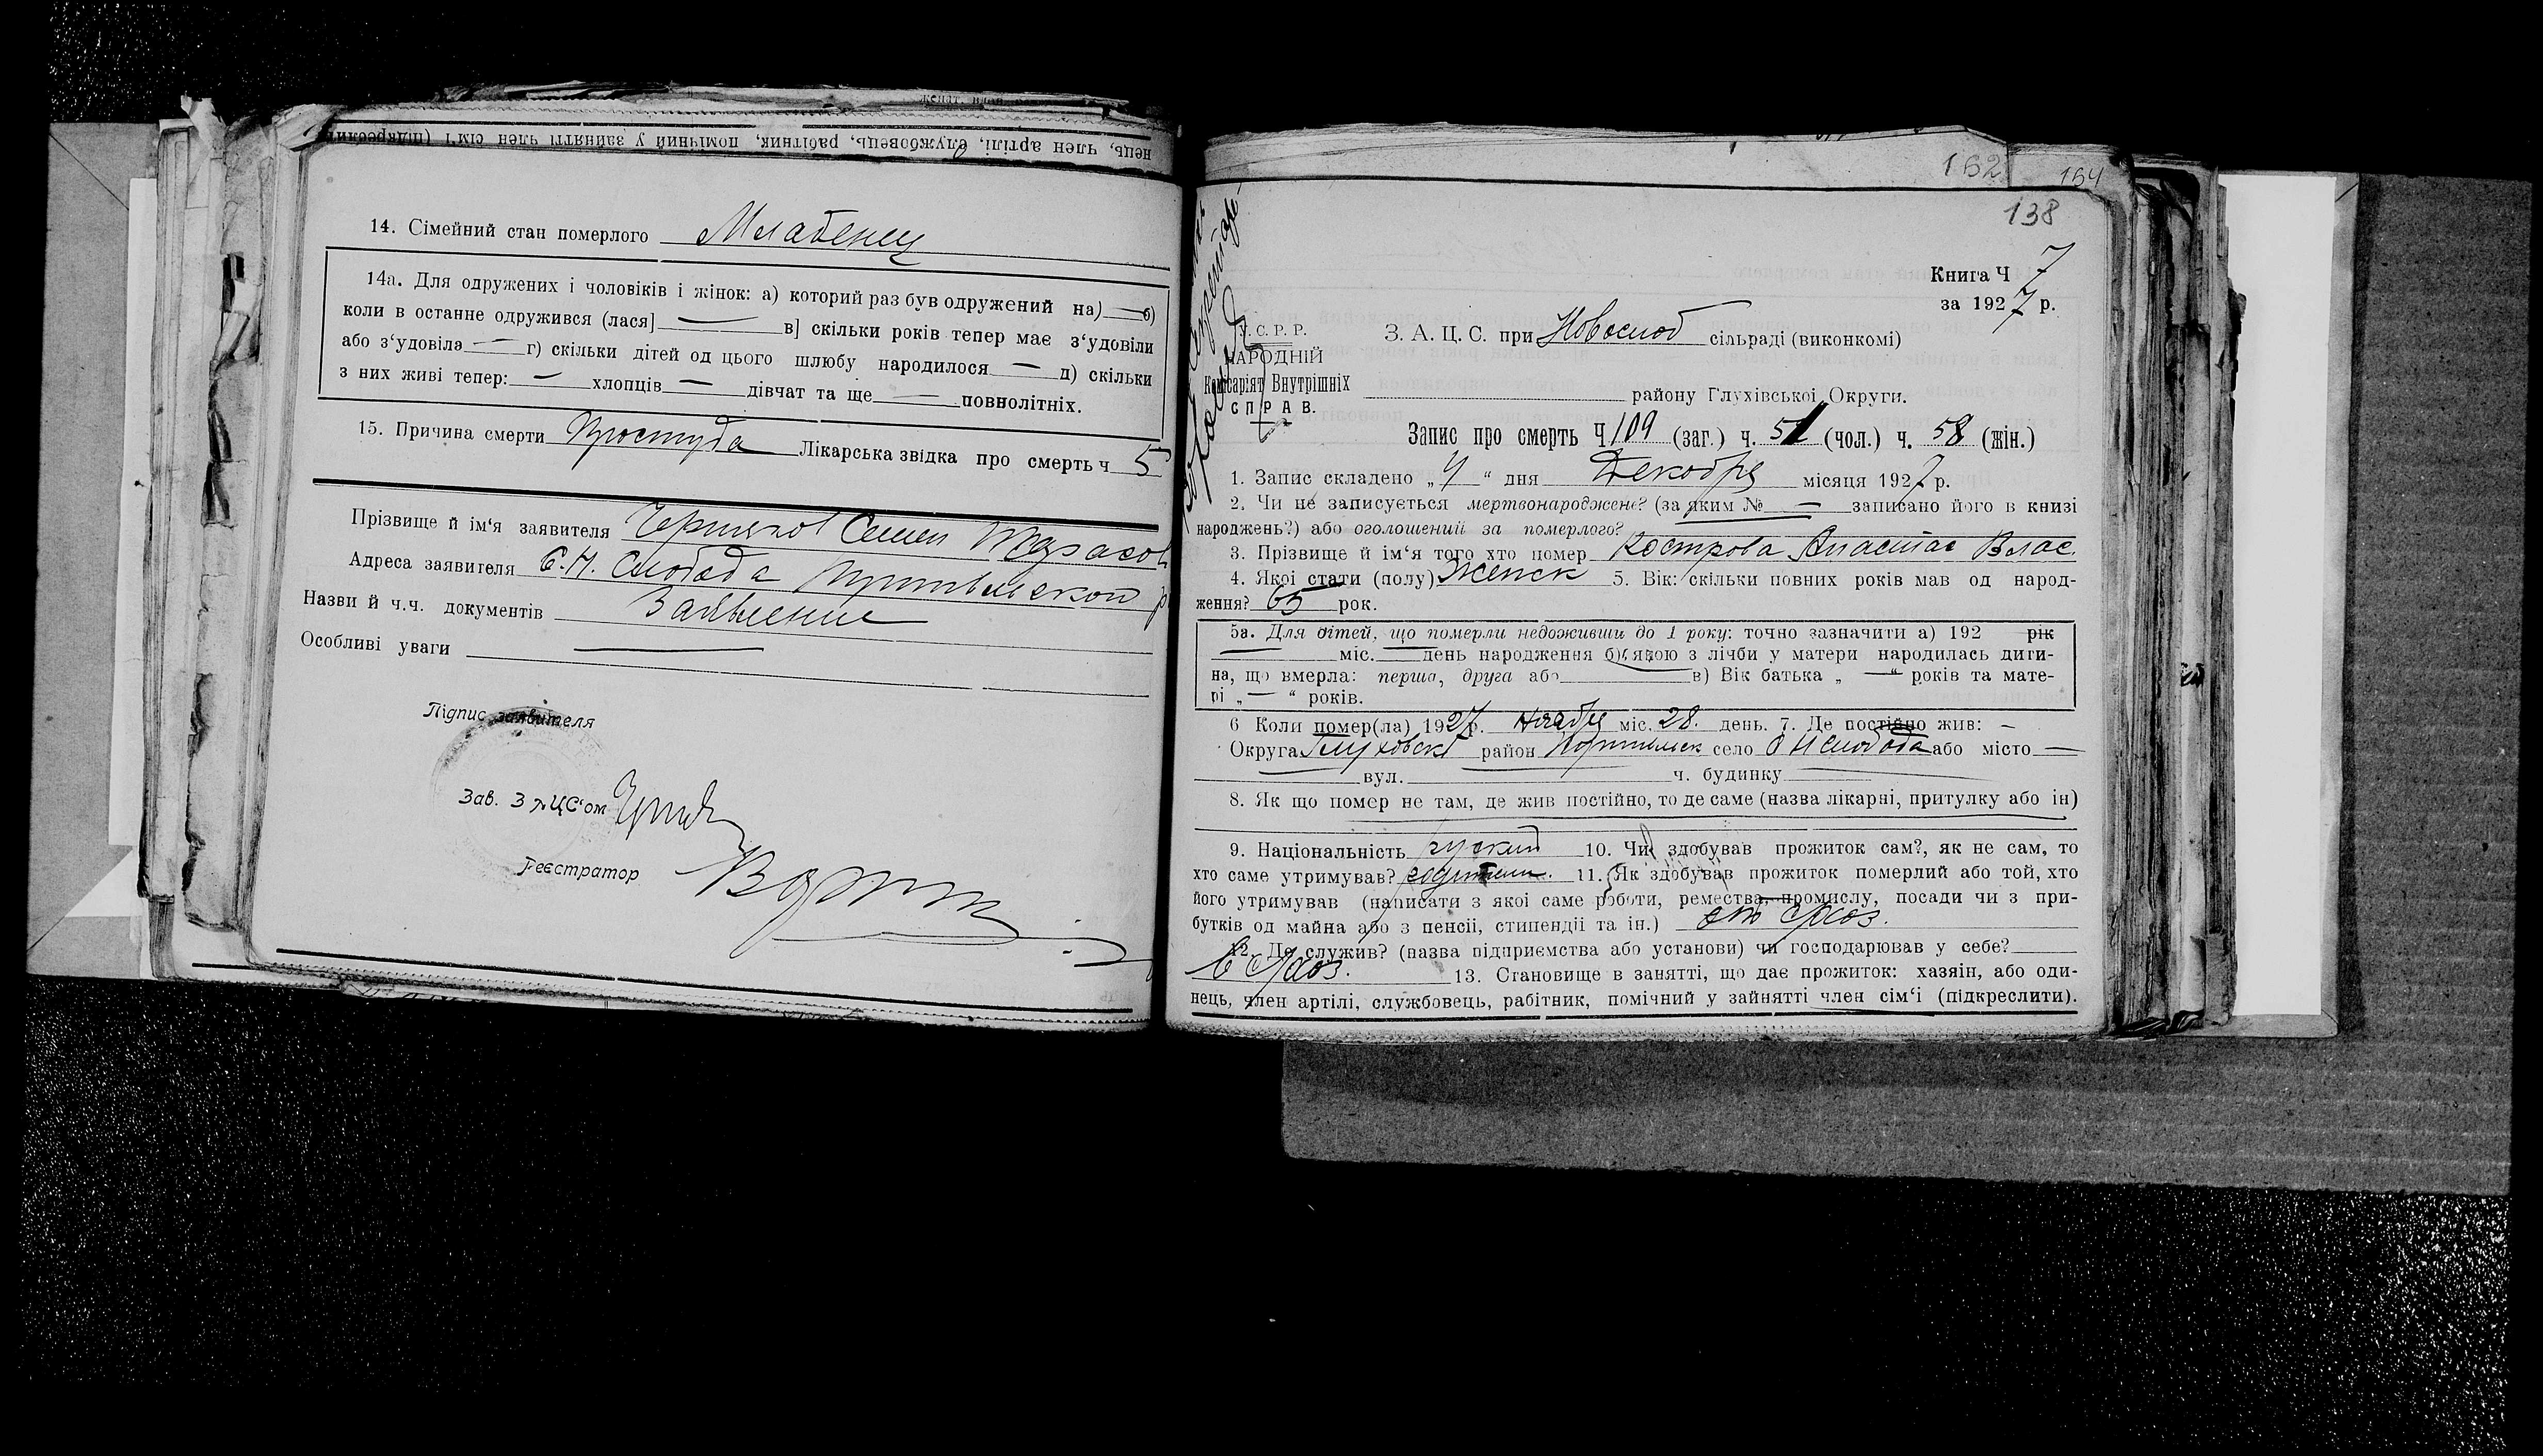 нець, член артілі, службовець, рабітник, помічний у зайнятті член сім'ї (підкреслити)
14. Сімейний стан померлого Младенец
14а. Для одружених і чоловіків і жінок: а) которий раз був одружений на) — б)
коли в останне одружився (лася] — в] скільки років тепер має з'удовіли
або з'удовіла — г) скільки дітей од цього шлюбу народилося — д) скільки
з них живі тепер: — хлопців — дівчат та ще — повнолітніх.
15. Причина смерти Простуда Лікарська звідка про смерть ч 5
Прізвище й ім'я заявителя Семен
Адреса заявителя С. Н. Слобода
Назви й ч.ч. документів Заявление
Особливі уваги —
Підпис заявителя
Зав. ЗАЦС'ом
Реєстратор
162
154
138
Книга Ч 7
за 1927 р.
У. С. Р. Р.
НАРОДНІЙ
Комісаріят Внутрішніх
СПРАВ.
З. А. Ц. С. при Новослоб сільраді (виконкомі)
району Глухівської Округи.
Запис про смерть Ч 109 (заг.) ч. 51 (чол.) ч. 58 (жін.)
1. Запис складено „4“ дня Декабря місяця 1927 р.
2. Чи не записується мертвонароджене? (за яким № — записано його в книзі
народжень?) або оголошений за померлого?
3. Прізвище й ім'я того хто помер Кострова Анастас Влас.
4. Якої стати (полу) Женск 5. Вік: скільки повних років мав од народ-
ження? 65 рок.
5а. Для дітей, що померли недоживши до 1 року: точно зазначити а) 192 рік
— міс. — день народження б) якою з лічби у матери народилась дити-
на, що вмерла: перша, друга або в) Вік батька „ — “ років та мате-
рі „ — “ років.
6 Коли помер(ла) 1927р. Ноября міс. 28. день. 7. Де постійно жив: –
Округа Глуховск район село С Н Слобода або місто —
вул. ч. будинку
8. Як що помер не там, де жив постійно, то де саме (назва лікарні, притулку або ін)
9. Національність руский 10. Чи здобував прожиток сам?, як не сам, то
хто саме утримував? 11. Як здобував прожиток померлий або той, хто
його утримував (написати з якої саме роботи, ремества, промислу, посади чи з при-
бутків од майна або з пенсії, стипендії та ін.) от с/хоз.
12. Де служив? (назва підприємства або установи) чи господарював у себе?
в с/хоз. 13. Становище в занятті, що дає прожиток: хазяін, або оди-
нець, член артілі, службовець, рабітник, помічний у зайнятті член сім'ї (підкреслити).